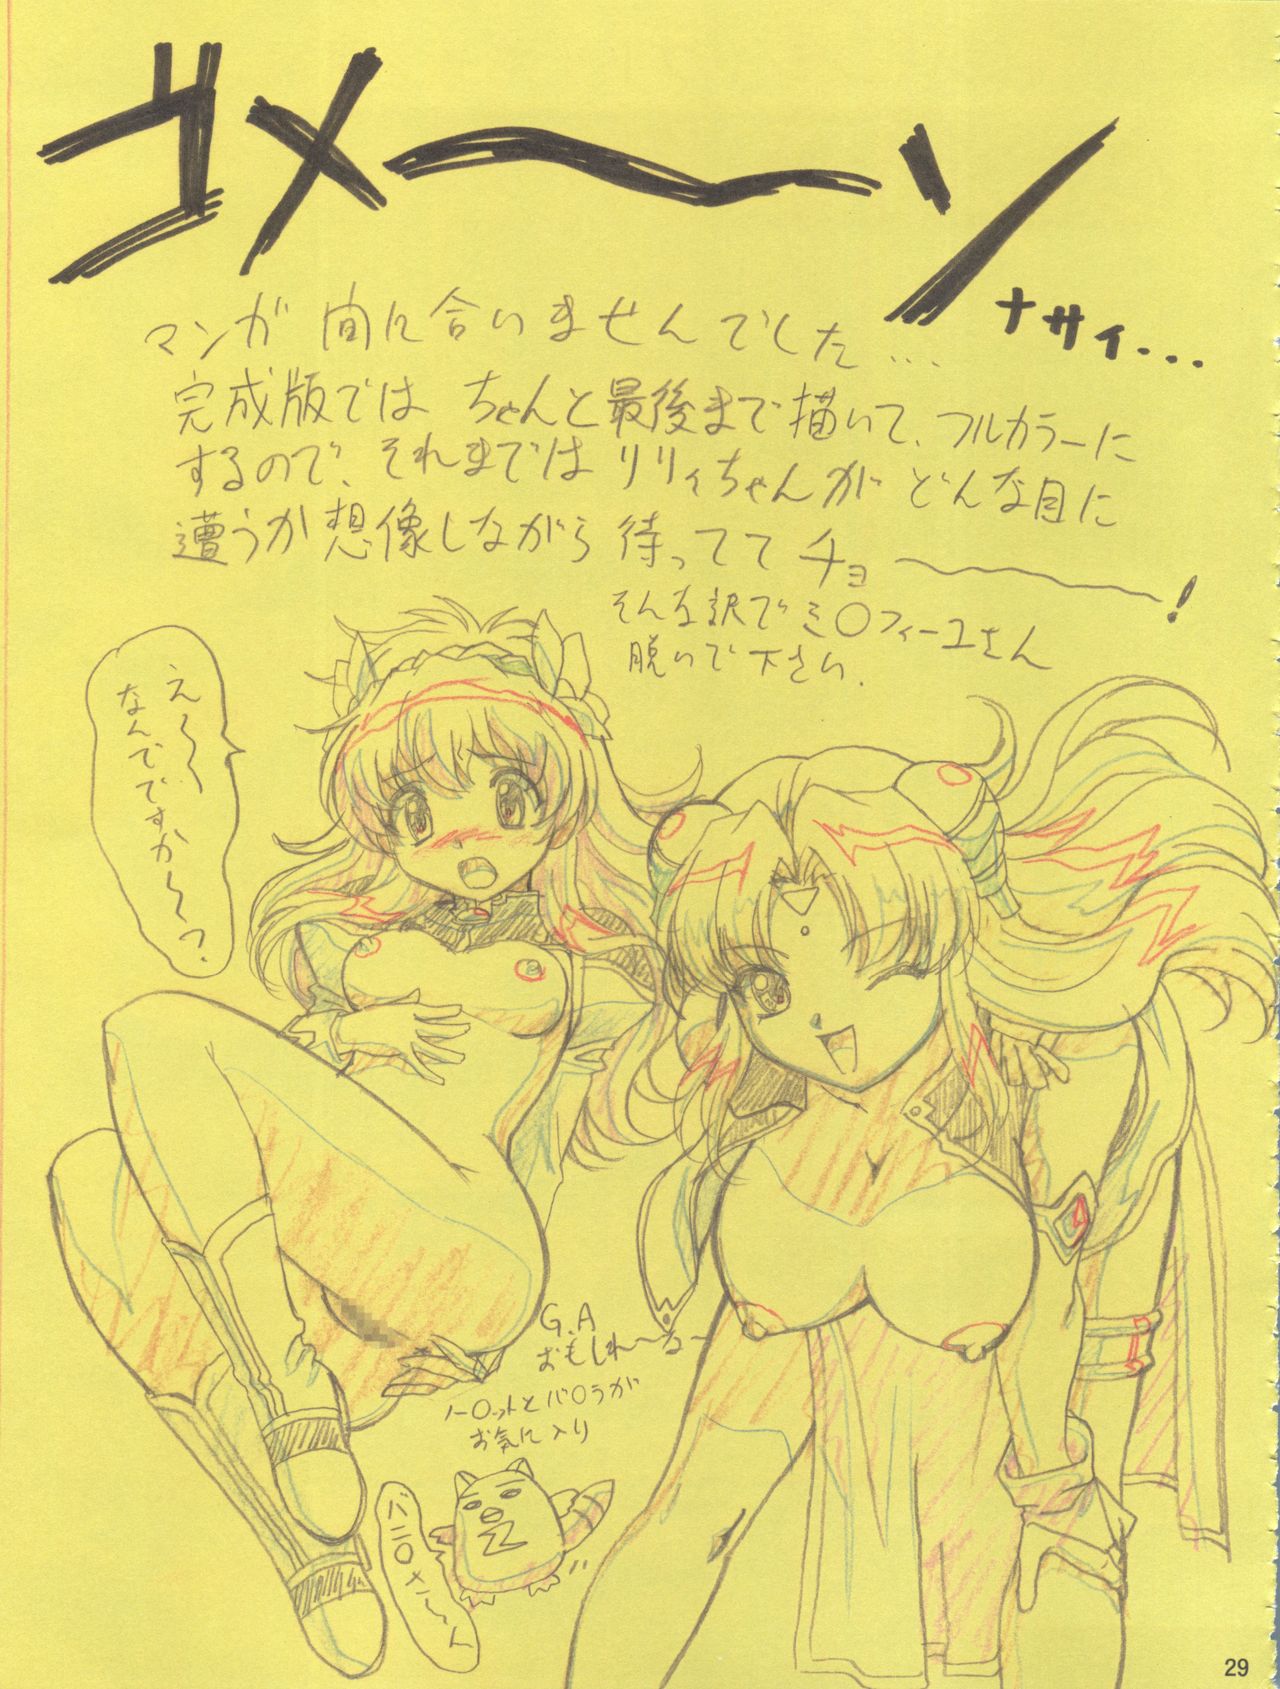 ゴメ〜ン
ナサイ...
マンガ 間に合いませんでした...
完成版では ちゃんと最後まで描いて、フルカラーに
するので、それまではリリィちゃんが どんな目に
遭うか想像しながら 待ってて チョ〜!
そんな訳でミ○フィーユさん
脱いで下さい.
え〜〜
なんでですか〜〜?.
G.A
おもしれ〜る〜
ノー○ットとバ○ラが
お気に入り
バニ○さ〜ん
29